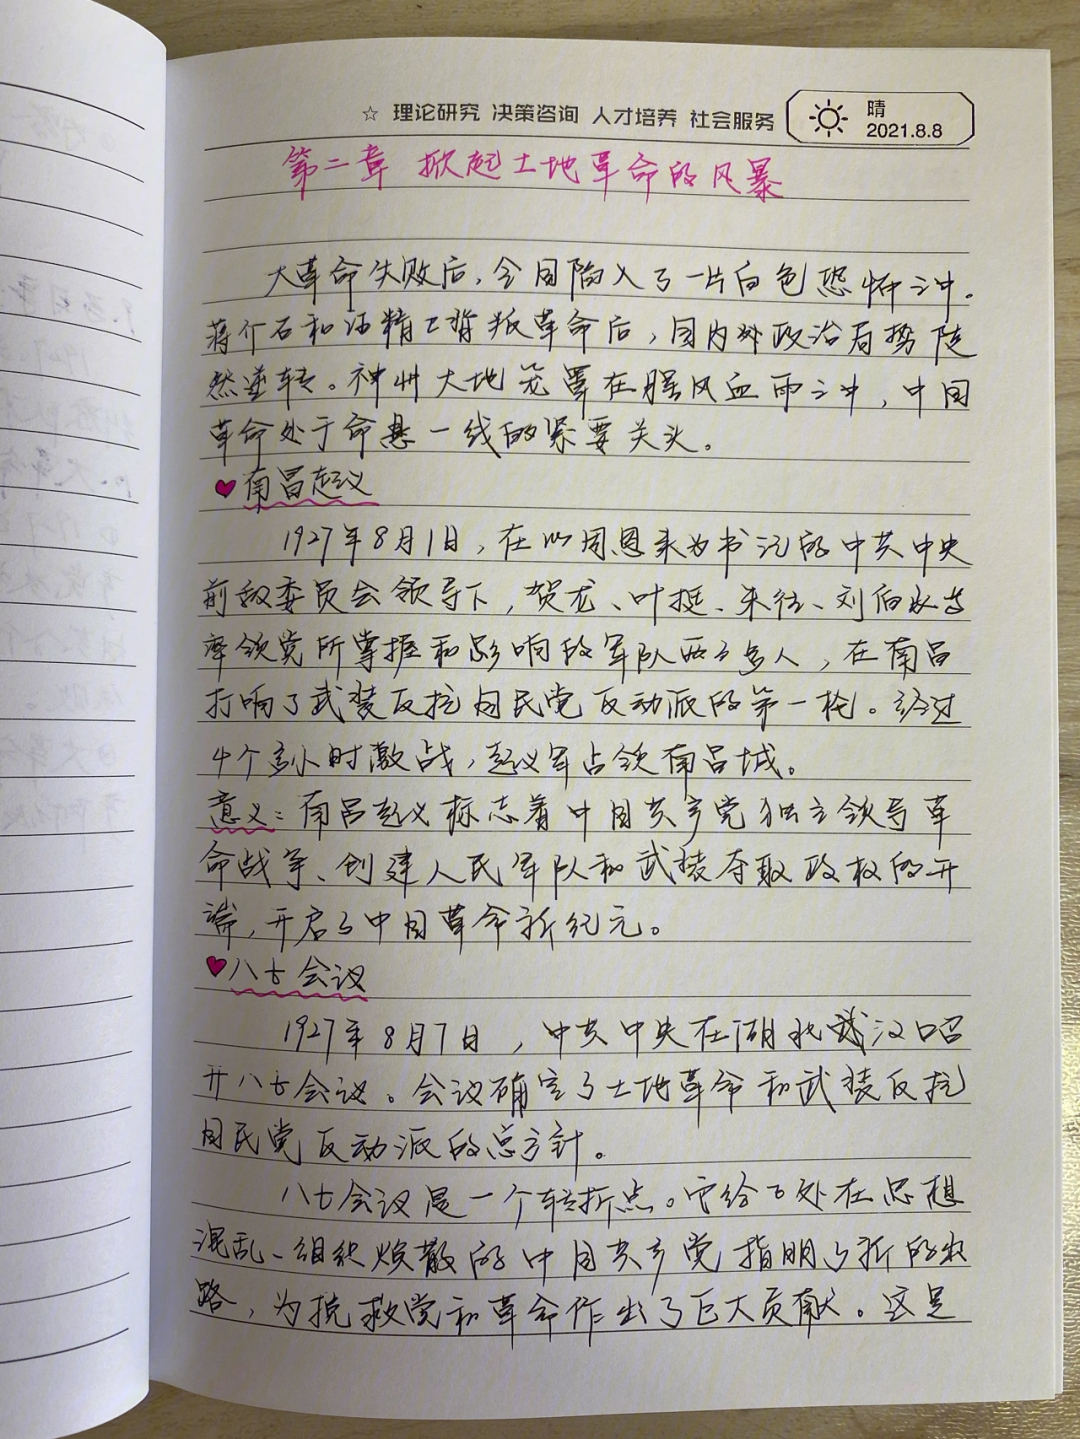 ☆ 理论研究 决策咨询 人才培养 社会服务
晴
2021.8.8
第二章 掀起土地革命的风暴
大革命失败后,全国陷入了一片白色恐怖之中。
蒋介石和汪精卫背叛革命后,国内外政治局势陡
然逆转。神州大地笼罩在腥风血雨之中,中国
革命处于命悬一线的紧要关头。
♥南昌起义
1927年8月1日,在以周恩来为书记的中共中央
前敌委员会领导下,贺龙、叶挺、朱德、刘伯承等
率领党所掌握和影响的军队两万多人,在南昌
打响了武装反抗国民党反动派的第一枪。经过
4个多小时激战,起义军占领南昌城。
意义:南昌起义标志着中国共产党独立领导革
命战争、创建人民军队和武装夺取政权的开
端,开启了中国革命新纪元。
♥八七会议
1927年8月7日,中共中央在湖北武汉召
开八七会议。会议确定了土地革命和武装反抗
国民党反动派的总方针。
八七会议是一个转折点。它给了处在思想
混乱、组织涣散的中国共产党指明了新的出
路,为挽救党和革命作出了巨大贡献。这是